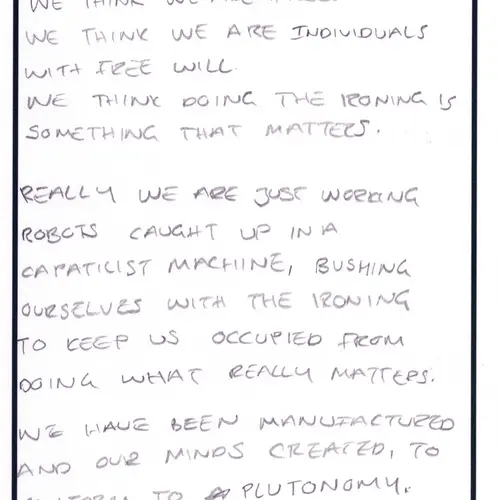 WE THINK WE ARE
WE THINK WE ARE INDIVIDUALS
WITH FREE WILL.
WE THINK DOING THE IRONING IS
SOMETHING THAT MATTERS.
REALLY WE ARE JUST WORKING
ROBOTS CAUGHT UP IN A
CAPATICLIST MACHINE, BUSHING
OURSELVES WITH THE IRONING
TO KEEP US OCCUPIED FROM
DOING WHAT REALLY MATTERS.
WE HAVE BEEN MANUFACTURED
AND OUR MINDS CREATED, TO
TO A PLUTONOMY.